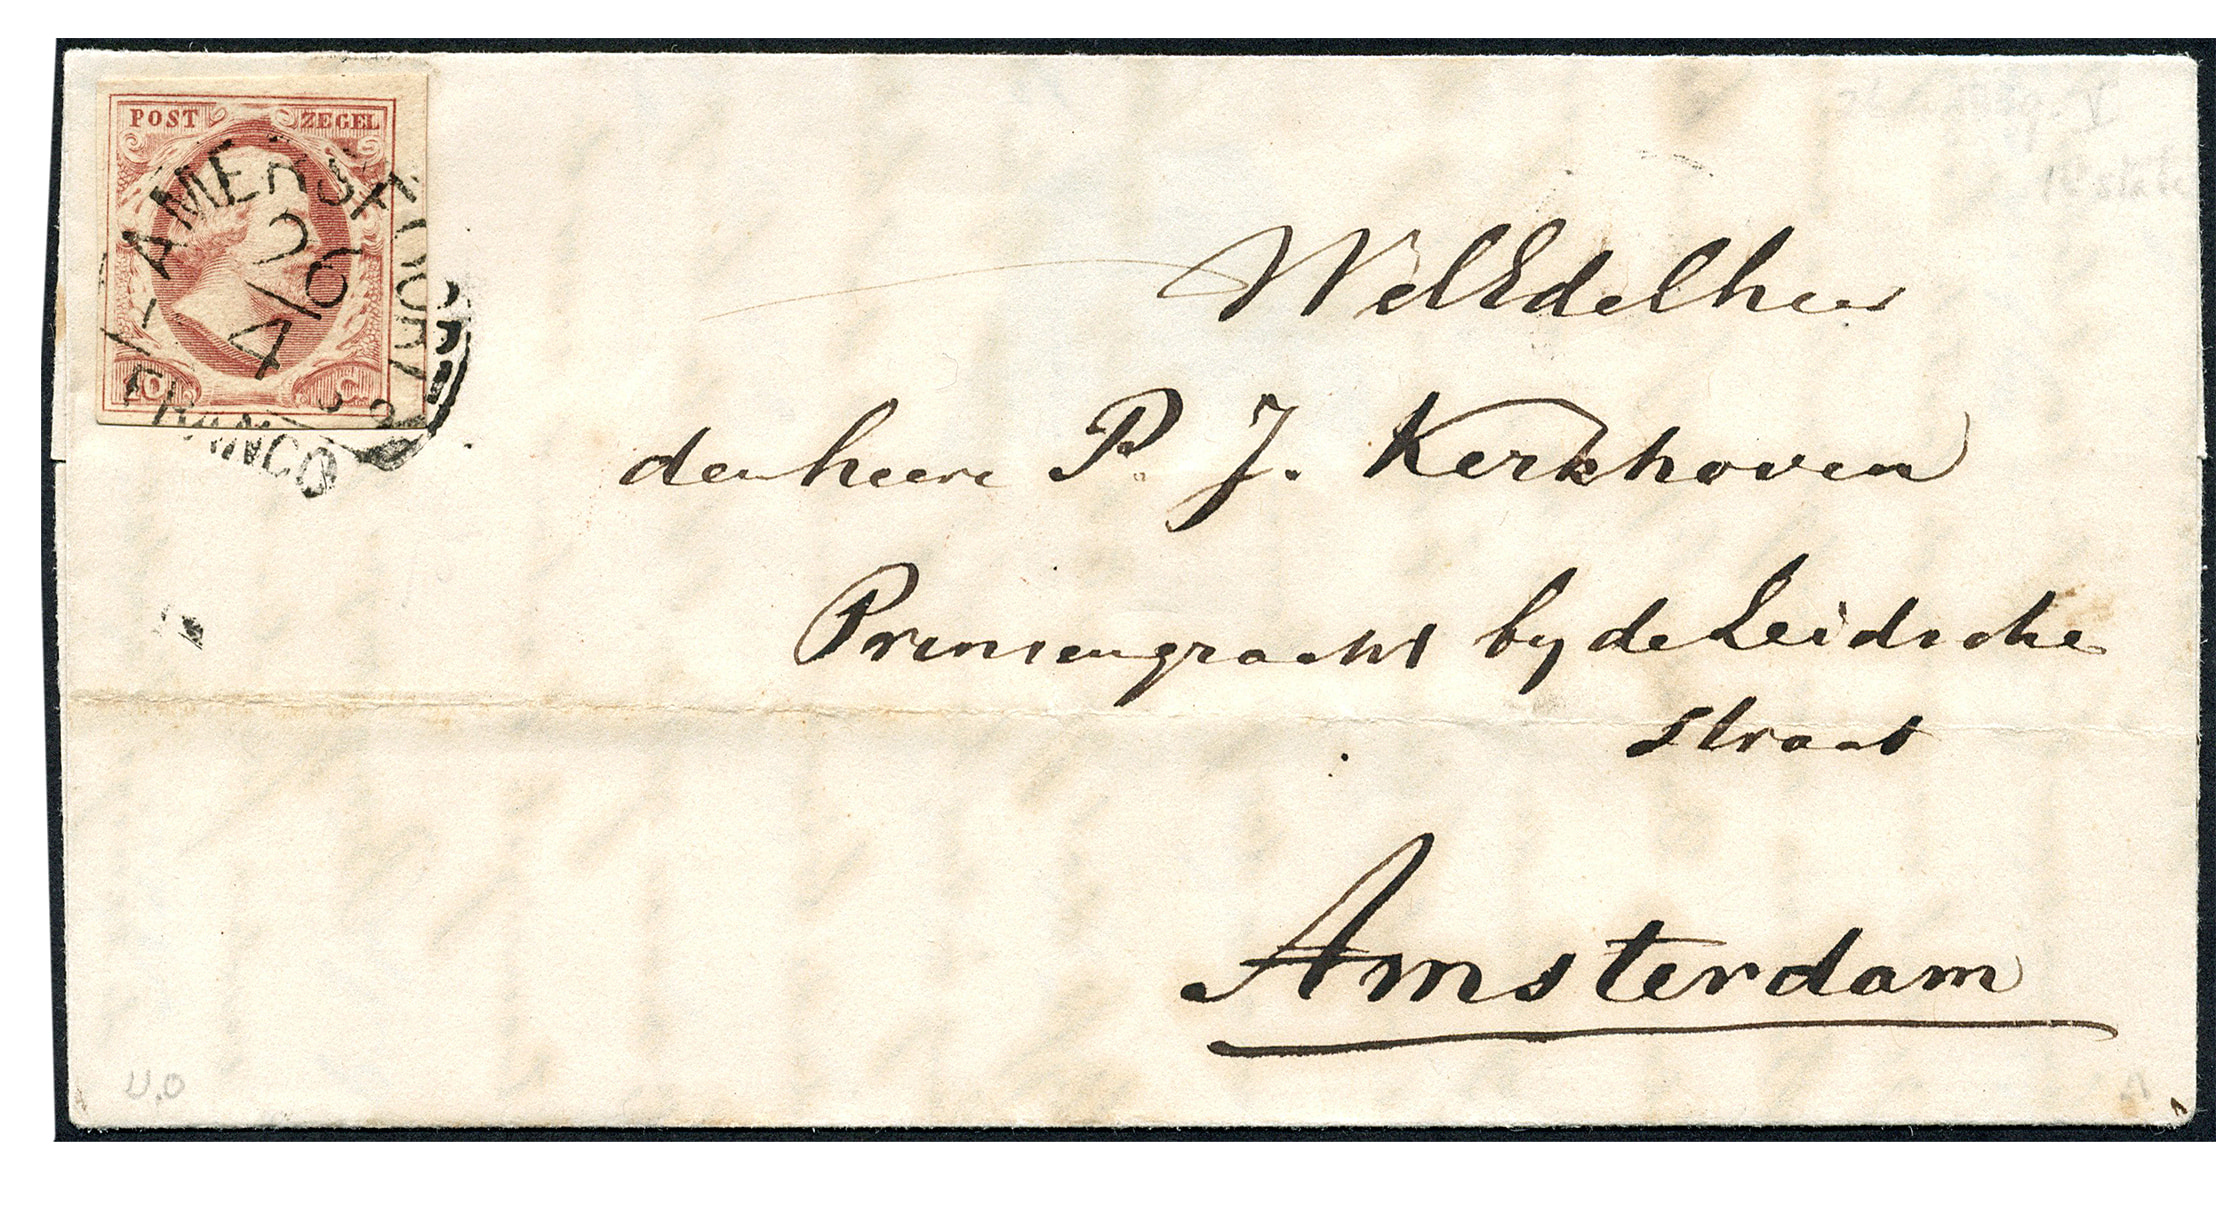 POST ZEGEL
AMERSFOORT
26/4
10 C
FRANCO
WelEdelheer
den heere P. J. Kerkhoven
Prinsengracht by de Leidsche
straat
Amsterdam